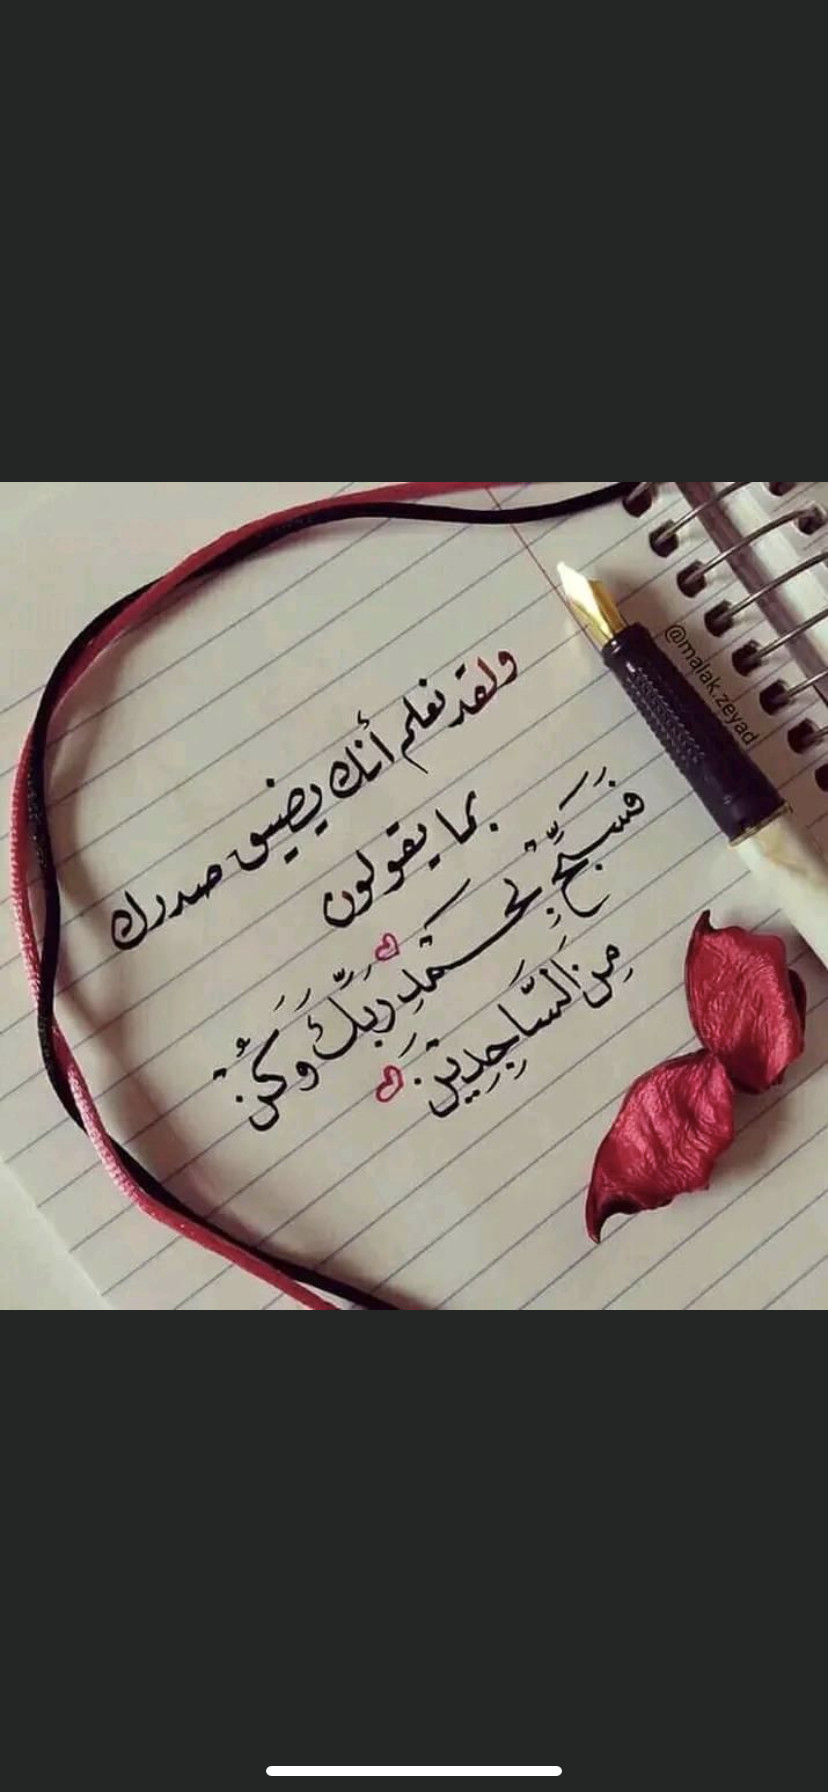 ولقد نعلم أنك يضيق صدرك
بما يقولون
فَسَبِّحْ بِحَمْدِ رَبِّكَ وَكُنْ
مِنَ السَّاجِدِيْنَ
@malak.zeyad